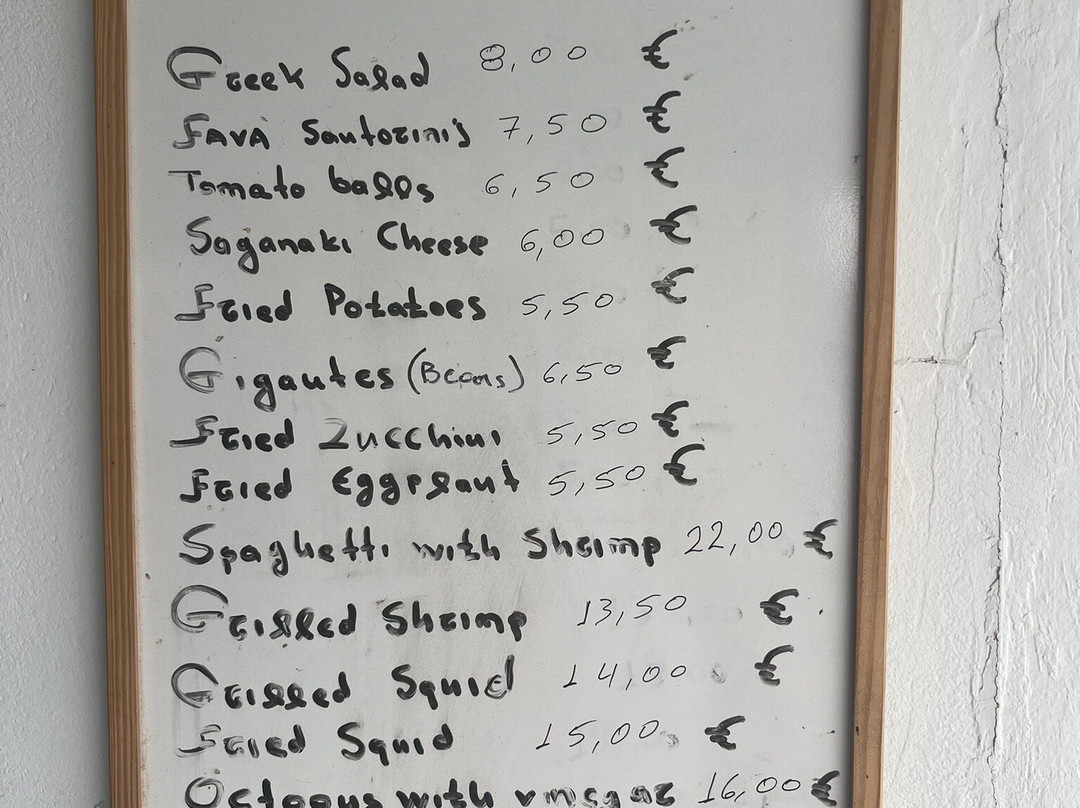 Greek Salad 8,00 €
FAVA Santorini's 7,50 €
Tomato balls 6,50 €
Saganaki Cheese 6,00 €
Fried Potatoes 5,50 €
Gigantes (Beans) 6,50 €
Fried Zucchini 5,50 €
Fried Eggplant 5,50 €
Spaghetti with Shrimp 22,00 €
Grilled Shrimp 13,50 €
Grilled Squid 14,00 €
Fried Squid 15,00 €
Octopus with vinegar 16,00 €